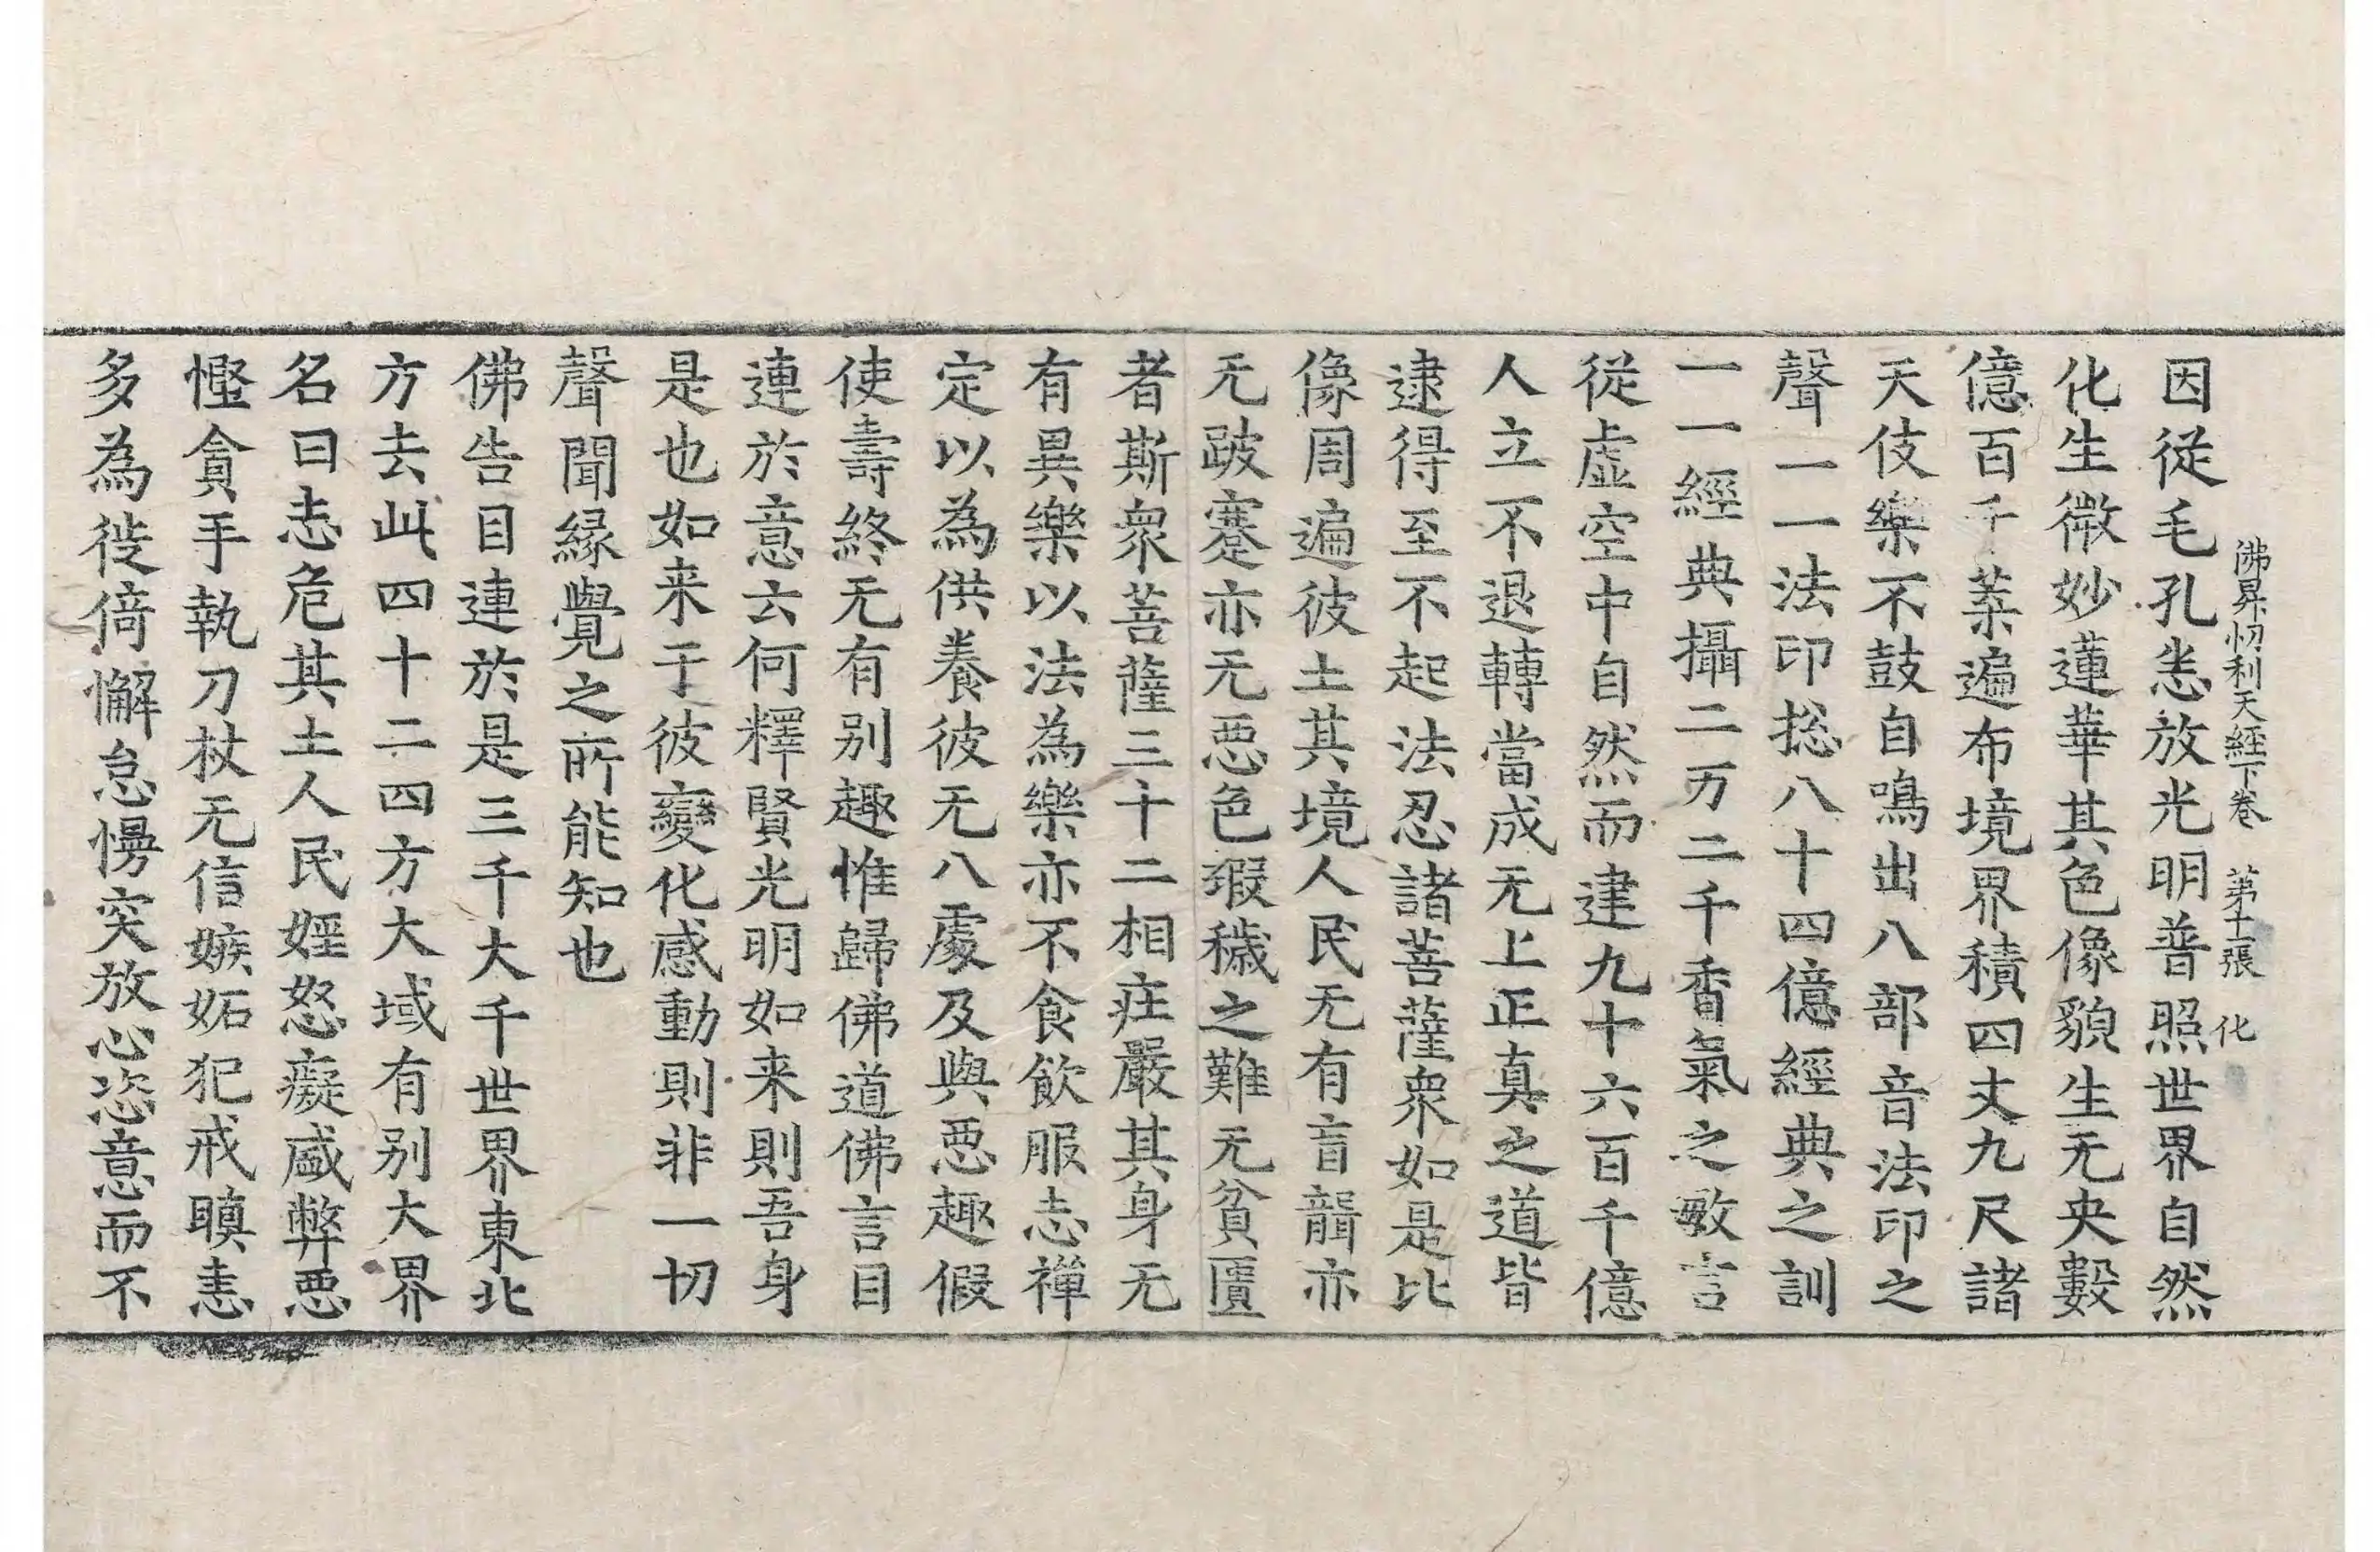 佛昇忉利天經下卷　第十一張　化
因從毛孔恚放光明普照世界自然
化生微妙蓮華其色像貌生无央數
億百千葉遍布境界積四丈九尺諸
天伎樂不鼓自鳴出八部音法印之
聲一一法印揔八十四億經典之訓
一一經典攝二万二千香氣之敷言
從虛空中自然而建九十六百千億
人立不退轉當成无上正真之道皆
逮得至不起法忍諸菩薩眾如是比
像周遍彼土其境人民无有盲聾亦
无跛蹇亦无惡色瑕穢之難无貧匱
者斯眾菩薩三十二相莊嚴其身无
有異樂以法為樂亦不食飲服志禪
定以為供養彼无八處及與惡趣假
使壽終无有別趣惟歸佛道佛言目
連於意云何釋賢光明如来則吾身
是也如来于彼變化感動則非一切
聲聞緣覺之所能知也
佛告目連於是三千大千世界東北
方去此四十二四方大域有別大界
名曰志危其土人民婬怒癡盛弊惡
慳貪手執刀杖无信嫉妬犯戒瞋恚
多為徙倚懈怠慢突放心恣意而不